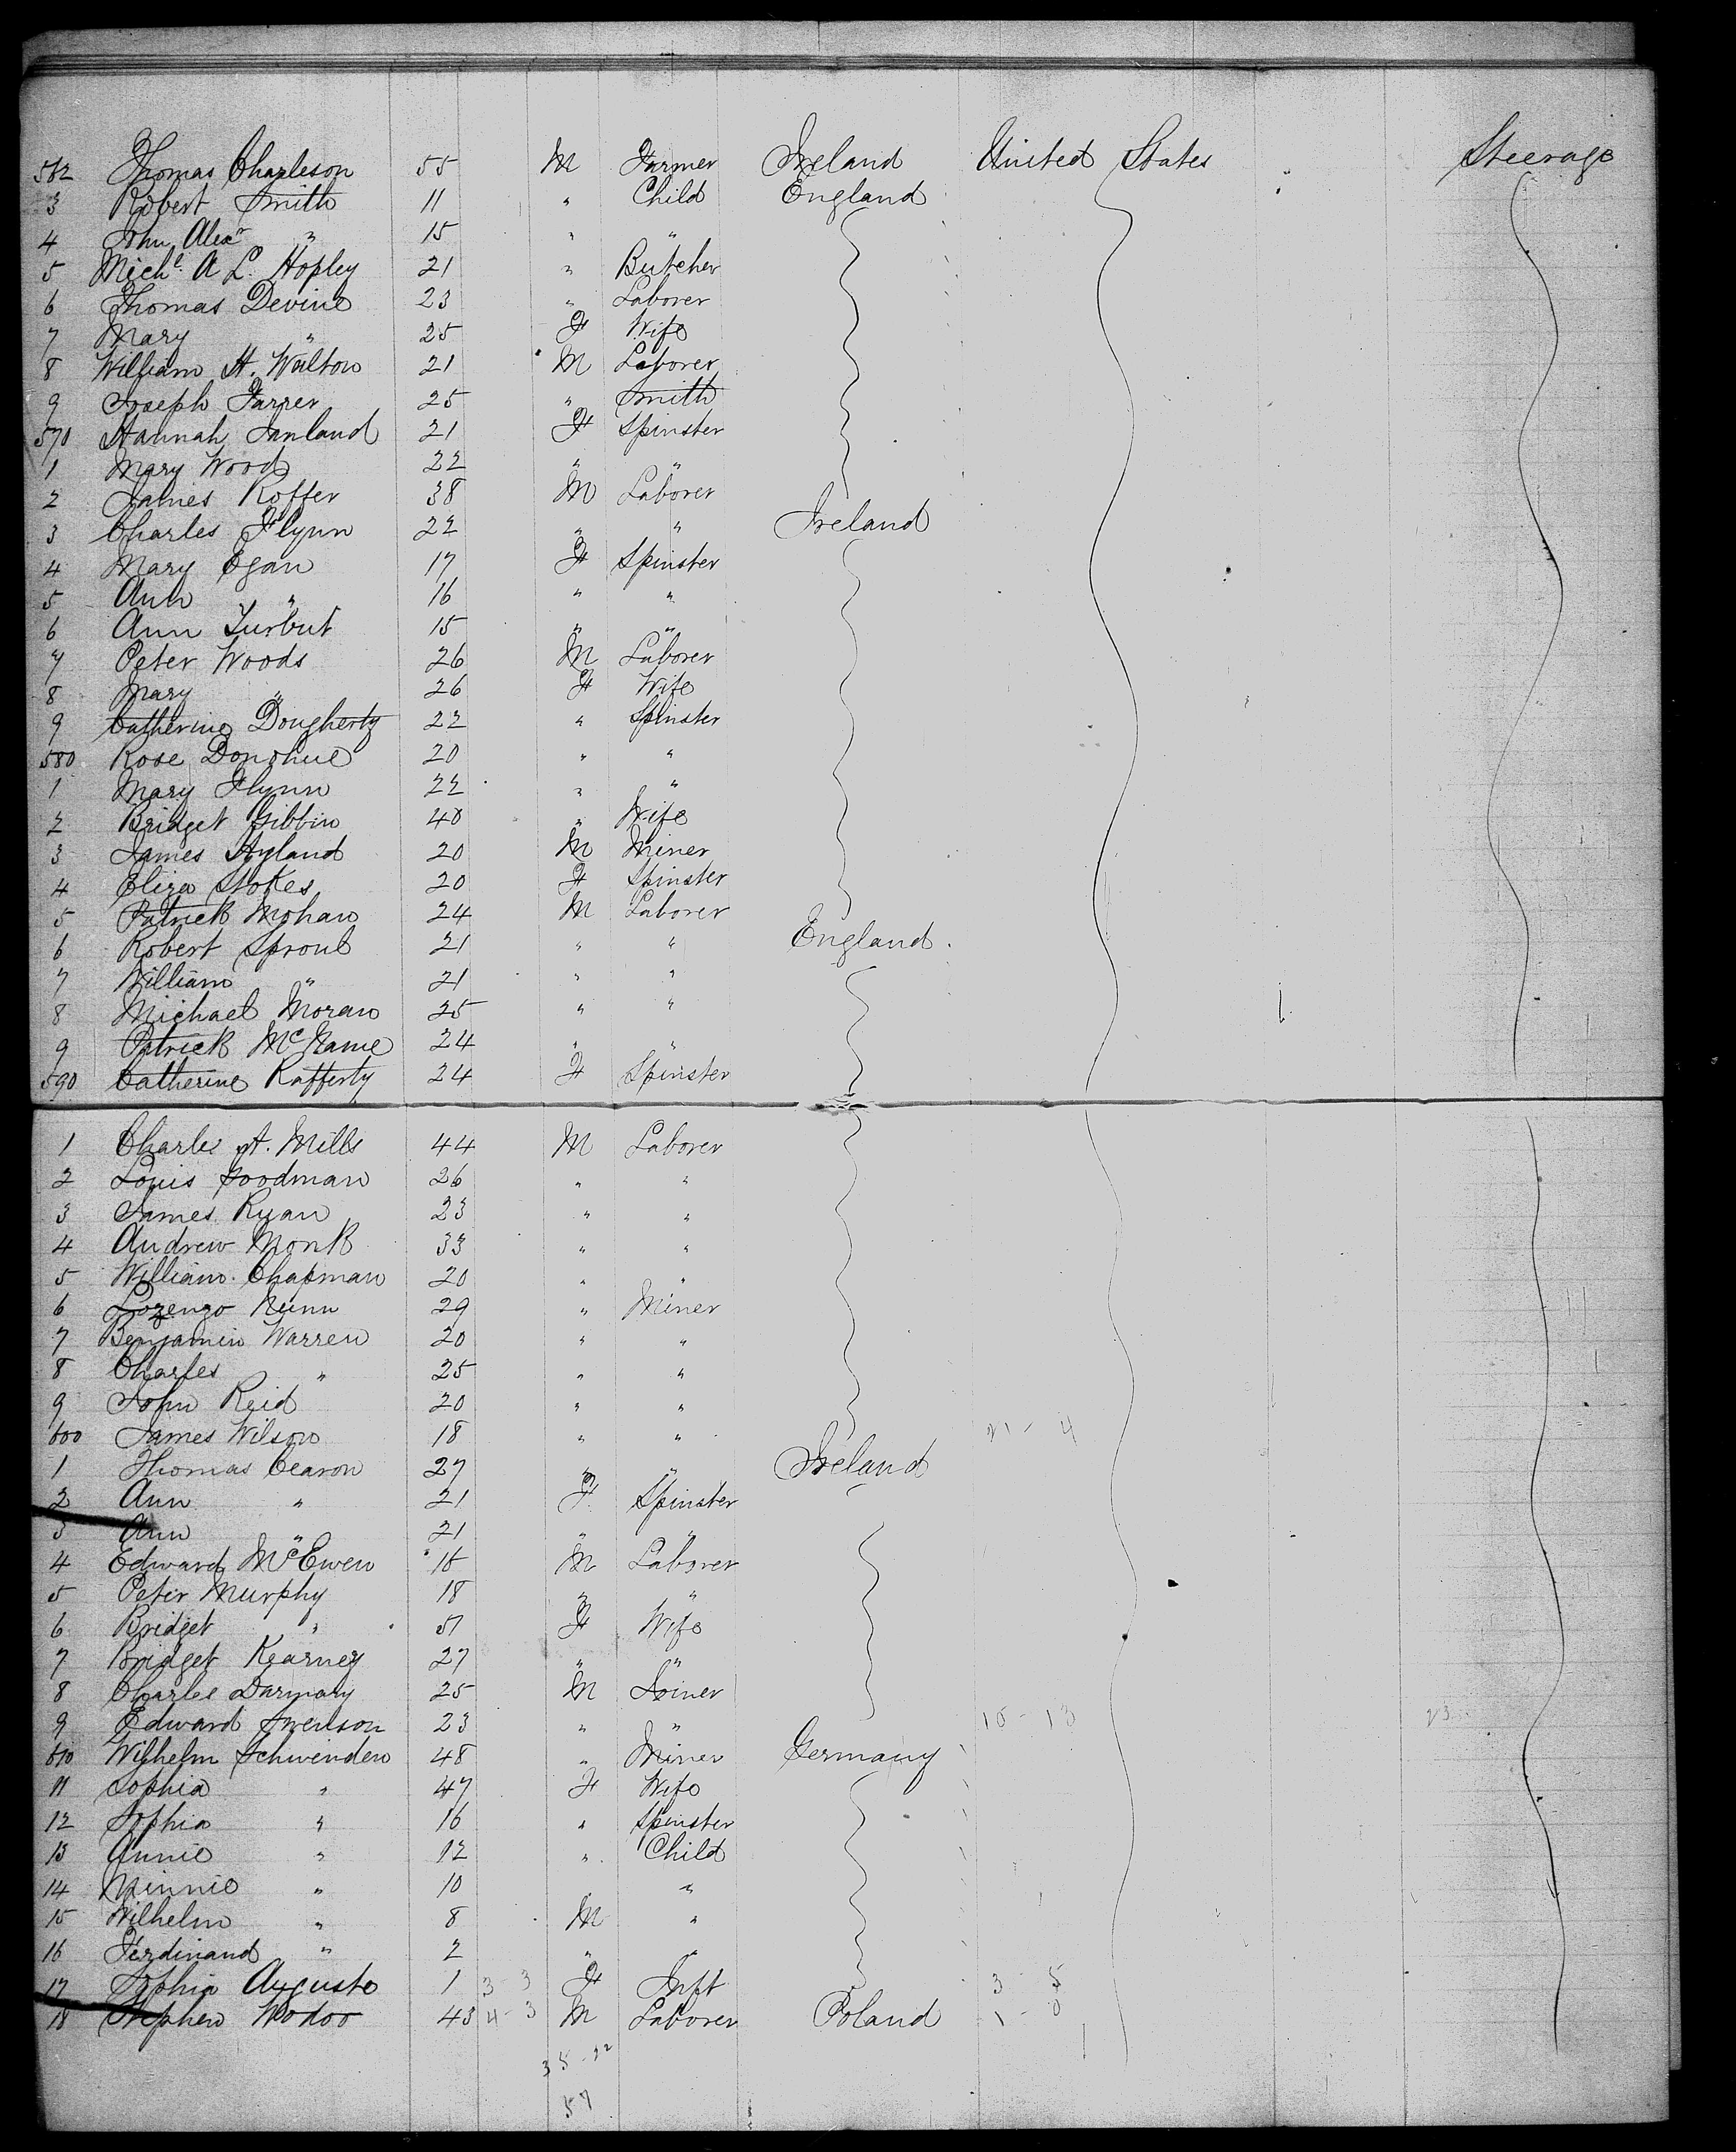 562 Thomas Charleson 55 M Farmer Ireland United States Steerage
3 Robert Smith 11 " Child England
4 John Alexr " 15 " "
5 Michl. A L. Hopley 21 " Butcher
6 Thomas Devine 23 " Laborer
7 Mary " 25 F Wife
8 William H. Walton 21 M Laborer
9 Joseph Farrer 25 " Smith
570 Hannah Sanland 21 F Spinster
1 Mary Wood 22 " "
2 James Roffer 38 M Laborer
3 Charles Flynn 22 " " Ireland
4 Mary Egan 17 F Spinster
5 Ann " 16 " "
6 Ann Turbut 15 " "
7 Peter Woods 26 M Laborer
8 Mary " 26 F Wife
9 Catherine Dougherty 22 " Spinster
580 Rose Donohue 20 " "
1 Mary Flynn 22 " "
2 Bridget Gibbin 40 " Wife
3 James Hyland 20 M Miner
4 Eliza Stokes 20 F Spinster
5 Patrick Mohan 24 M Laborer
6 Robert Sproul 21 " " England.
7 William " 21 " "
8 Michael Moran 25 " "
9 Patrick McName 24 " "
590 Catherine Rafferty 24 F Spinster
1 Charles A. Mills 44 M Laborer
2 Louis Goodman 26 " "
3 James Ryan 23 " "
4 Andrew Monk 33 " "
5 William Chapman 20 " "
6 Lozengo Nunn 29 " Miner
7 Benjamin Warren 20 " "
8 Charles " 25 " "
9 John Reid 20 " "
600 James Wilson 18 " " 21 - 4
1 Thomas Cearon 27 " " Ireland
2 Ann " 21 F Spinster
3 Ann " 21 " "
4 Edward McEwen 18 M Laborer
5 Peter Murphy 18 " "
6 Bridget " 51 F Wife
7 Bridget Kearney 27 " "
8 Charles Darmary 25 M Joiner
9 Edward Swenson 23 " " 10 - 13 23
610 Wilhelm Schwinden 48 " Miner Germany
11 Sophia " 47 F Wife
12 Sophia " 16 " Spinster
13 Annie " 12 " Child
14 Minnie " 10 " "
15 Wilhelm " 8 M "
16 Ferdinand " 2 " "
17 Sophia Auguste 1 3 - 3 F Inft 3 - 5
18 Stephen Wodoo 43 4 - 3 M Laborer Poland 1 - 0
35 - 22
57